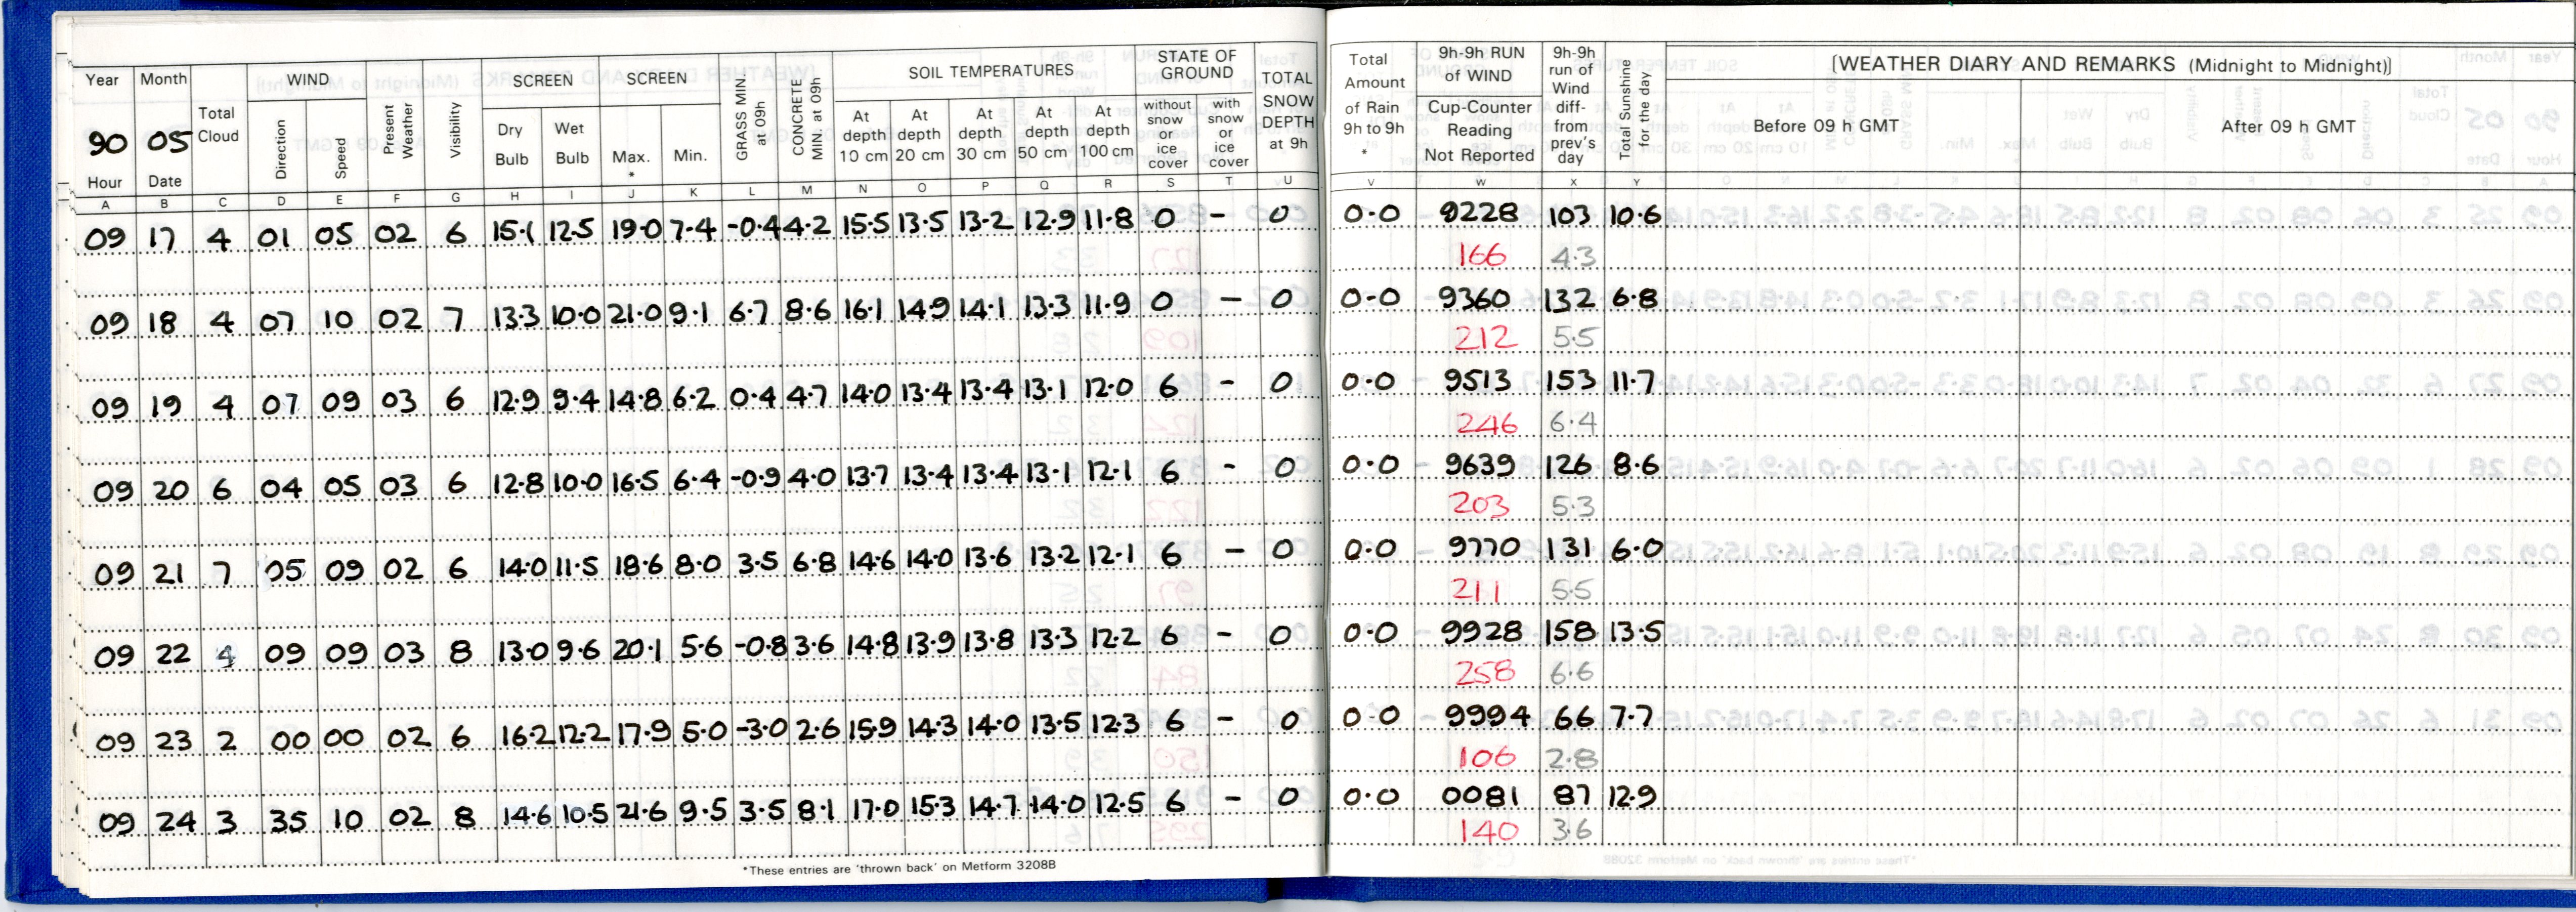 Year Month WIND SCREEN SCREEN SOIL TEMPERATURES STATE OF GROUND
90 05
Hour Date
Total Cloud
Direction
Speed
Present Weather
Visibility
Dry Bulb
Wet Bulb
Max. *
Min.
GRASS MIN. at 09h
CONCRETE MIN. at 09h
At depth 10 cm
At depth 20 cm
At depth 30 cm
At depth 50 cm
At depth 100 cm
without snow or ice cover
with snow or ice cover
TOTAL SNOW DEPTH at 9h
Total Amount of Rain 9h to 9h *
9h-9h RUN of WIND
Cup-Counter Reading Not Reported
9h-9h run of Wind diff- from prev's day
Total Sunshine for the day
[WEATHER DIARY AND REMARKS (Midnight to Midnight)]
Before 09 h GMT
After 09 h GMT
A B C D E F G H I J K L M N O P Q R S T U V W X Y
09 17 4 01 05 02 6 15.1 12.5 19.0 7.4 -0.4 4.2 15.5 13.5 13.2 12.9 11.8 0 - 0 0.0 9228 103 10.6
166 4.3
09 18 4 07 10 02 7 13.3 10.0 21.0 9.1 6.7 8.6 16.1 14.9 14.1 13.3 11.9 0 - 0 0.0 9360 132 6.8
212 5.5
09 19 4 07 09 03 6 12.9 9.4 14.8 6.2 0.4 4.7 14.0 13.4 13.4 13.1 12.0 6 - 0 0.0 9513 153 11.7
246 6.4
09 20 6 04 05 03 6 12.8 10.0 16.5 6.4 -0.9 4.0 13.7 13.4 13.4 13.1 12.1 6 - 0 0.0 9639 126 8.6
203 5.3
09 21 7 05 09 02 6 14.0 11.5 18.6 8.0 3.5 6.8 14.6 14.0 13.6 13.2 12.1 6 - 0 0.0 9770 131 6.0
211 5.5
09 22 4 09 09 03 8 13.0 9.6 20.1 5.6 -0.8 3.6 14.8 13.9 13.8 13.3 12.2 6 - 0 0.0 9928 158 13.5
258 6.6
09 23 2 00 00 02 6 16.2 12.2 17.9 5.0 -3.0 2.6 15.9 14.3 14.0 13.5 12.3 6 - 0 0.0 9994 66 7.7
106 2.8
09 24 3 35 10 02 8 14.6 10.5 21.6 9.5 3.5 8.1 17.0 15.3 14.7 14.0 12.5 6 - 0 0.0 0081 87 12.9
140 3.6
*These entries are 'thrown back' on Metform 3208B